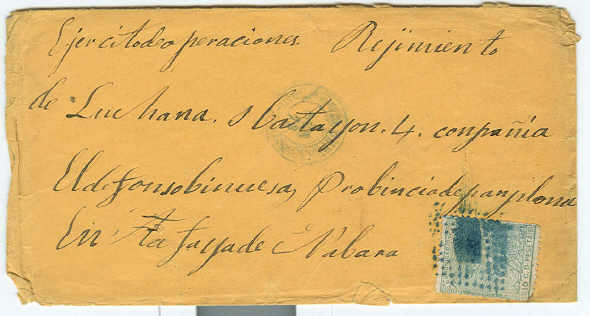 Ejercitodeo peraciones. Rejimiento
de Luchana. Batayon. 4. conpañia
Eldefonsobinuesa, Probinciadepanplona
En Tafayade Nabara